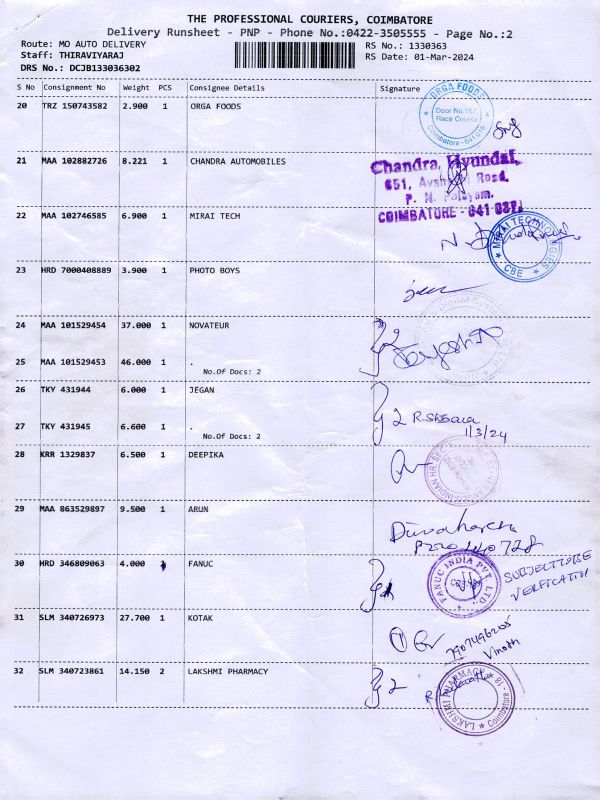 THE PROFESSIONAL COURIERS, COIMBATORE
Delivery Runsheet - PNP - Phone No.:0422-3505555 - Page No.:2
Route: MO AUTO DELIVERY
RS No.: 1330363
Staff: THIRAVIYARAJ
RS Date: 01-Mar-2024
DRS No.: DCJB133036302
S No Consignment No Weight PCS Consignee Details Signature
20 TRZ 150743582 2.900 1 ORGA FOODS
ORGA FOODS
Door No.167
Race Course
Coimbatore - 641 018
21 MAA 102882726 8.221 1 CHANDRA AUTOMOBILES
Chandra, Hyundai,
651, Road,
P. N. Palayam,
COIMBATORE - 641 037
22 MAA 102746585 6.900 1 MIRAI TECH
MIRAI TECHNOLOGIES
CBE
23 HRD 7000408889 3.900 1 PHOTO BOYS
24 MAA 101529454 37.000 1 NOVATEUR
2
25 MAA 101529453 46.000 1 .
No.Of Docs: 2
26 TKY 431944 6.000 1 JEGAN
2
1/3/24
27 TKY 431945 6.600 1 .
No.Of Docs: 2
28 KRR 1329837 6.500 1 DEEPIKA
29 MAA 863529897 9.500 1 ARUN
30 HRD 346809063 4.000 FANUC
FANUC INDIA PVT. LTD.
SUBJECT TO
VERIFICATION
31 SLM 340726973 27.700 1 KOTAK
1
7907496205
Vinoth
32 SLM 340723861 14.150 2 LAKSHMI PHARMACY
2
LAKSHMI PHARMACY
Coimbatore - 18